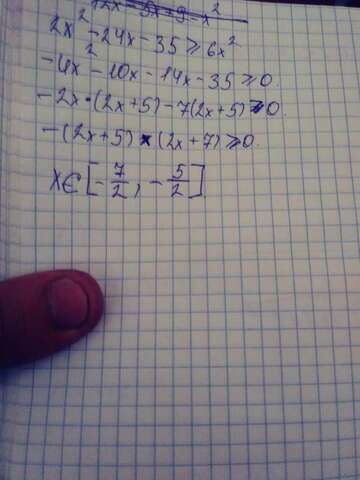 2x² - 24x - 35 ⩾ 6x²
-4x² - 10x - 14x - 35 ⩾ 0.
-2x · (2x+5) - 7(2x+5) ⩾ 0.
-(2x+5) × (2x+7) ⩾ 0.
x∈[-7/2, -5/2]